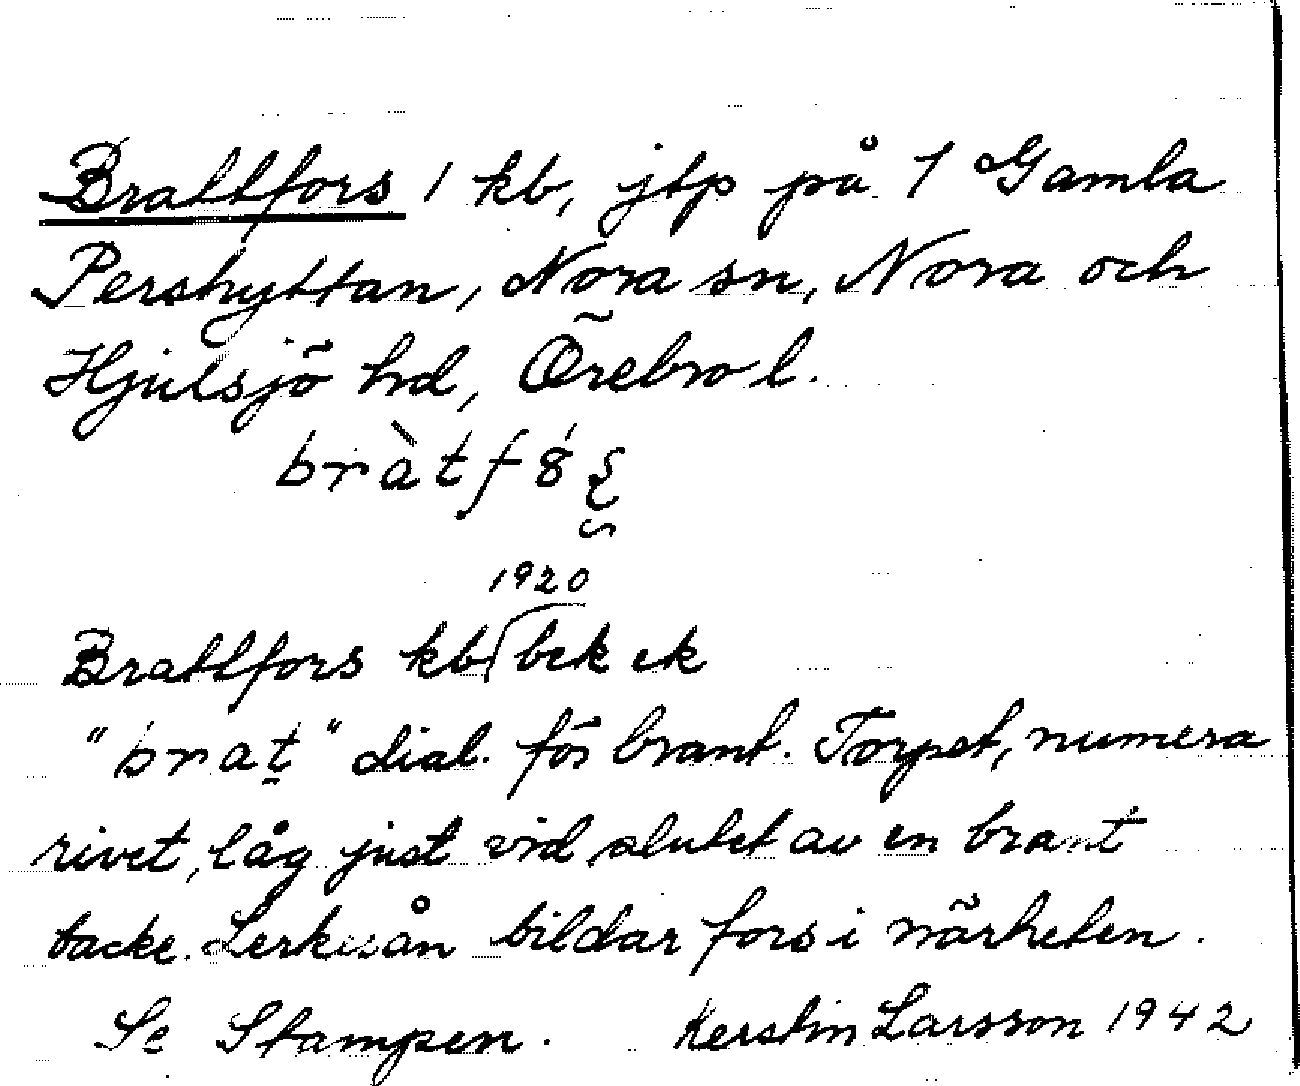 Brattfors 1 kb, jtp på 1 Gamla
Pershyttan, Nora sn, Nora och
Hjulsjö hd, Örebro l.
1920
Brattfors kb, bek ek
"brat" dial. för brant. Torpet, numera
rivet, låg just vid slutet av en brant
backe. Lerkesån bildar fors i närheten.
Se Stampen. Kerstin Larsson 1942